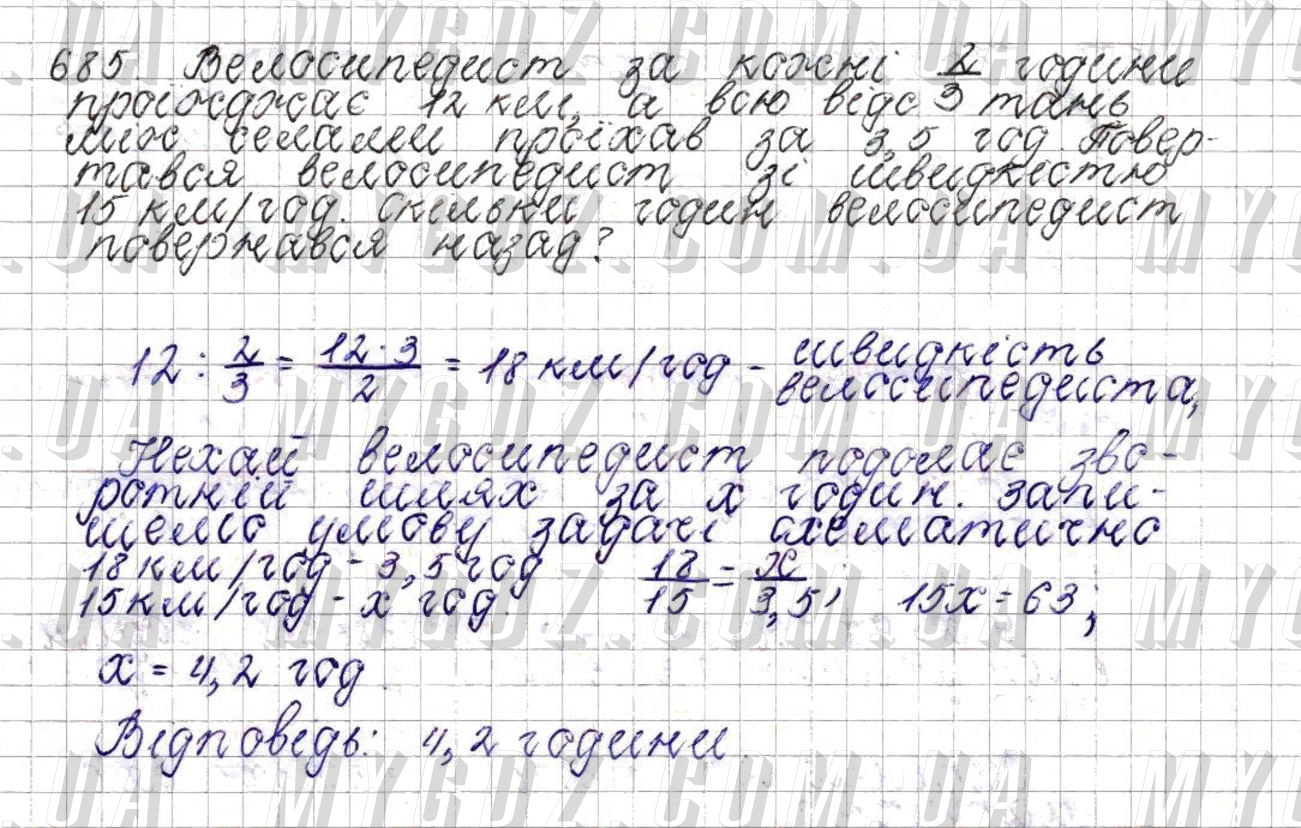 685. Велосипедист за кожні 2/3 години
проїжджає 12 км, а всю відстань
між селами проїхав за 3,5 год. Повер-
тався велосипедист зі швидкістю
15 км/год. Скільки годин велосипедист
повертався назад?
12 : 2/3 = 12·3/2 = 18 км/год - швидкість
велосипедиста,
Нехай велосипедист подолає зво-
ротній шлях за x годин. Запи-
шемо умову задачі схематично
18 км/год - 3,5 год
15 км/год - x год.
18/15 = x/3,5; 15x = 63;
x = 4,2 год
Відповідь: 4,2 години.